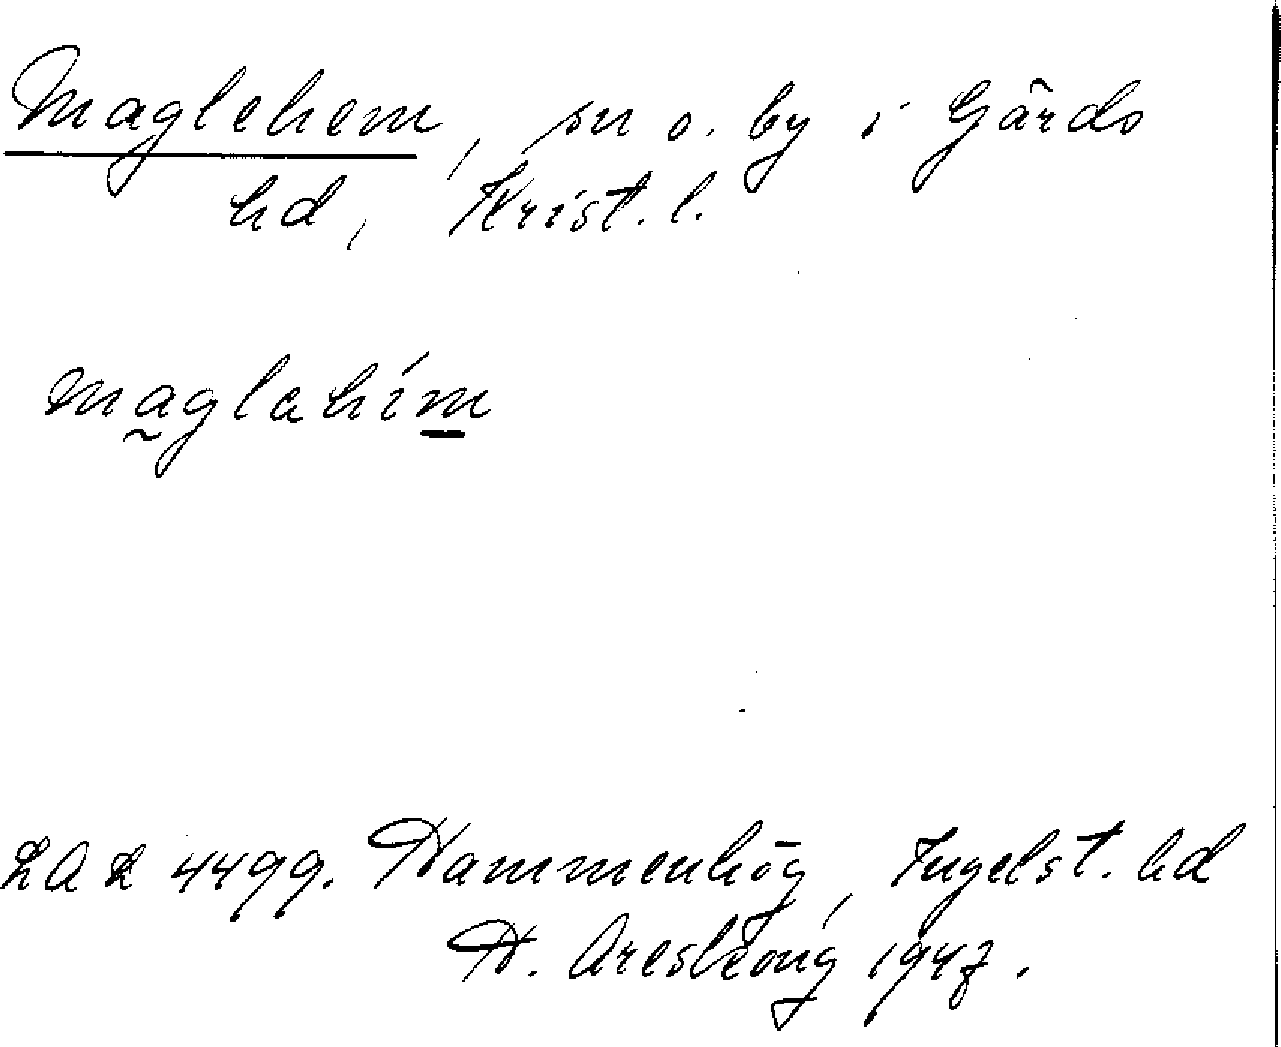 Maglehem, sn o. by i Gärds
hd, Krist. l.
maglahim
LAL 4499. Hammenhög, Ingelst. hd
H. Areskoug 1947.